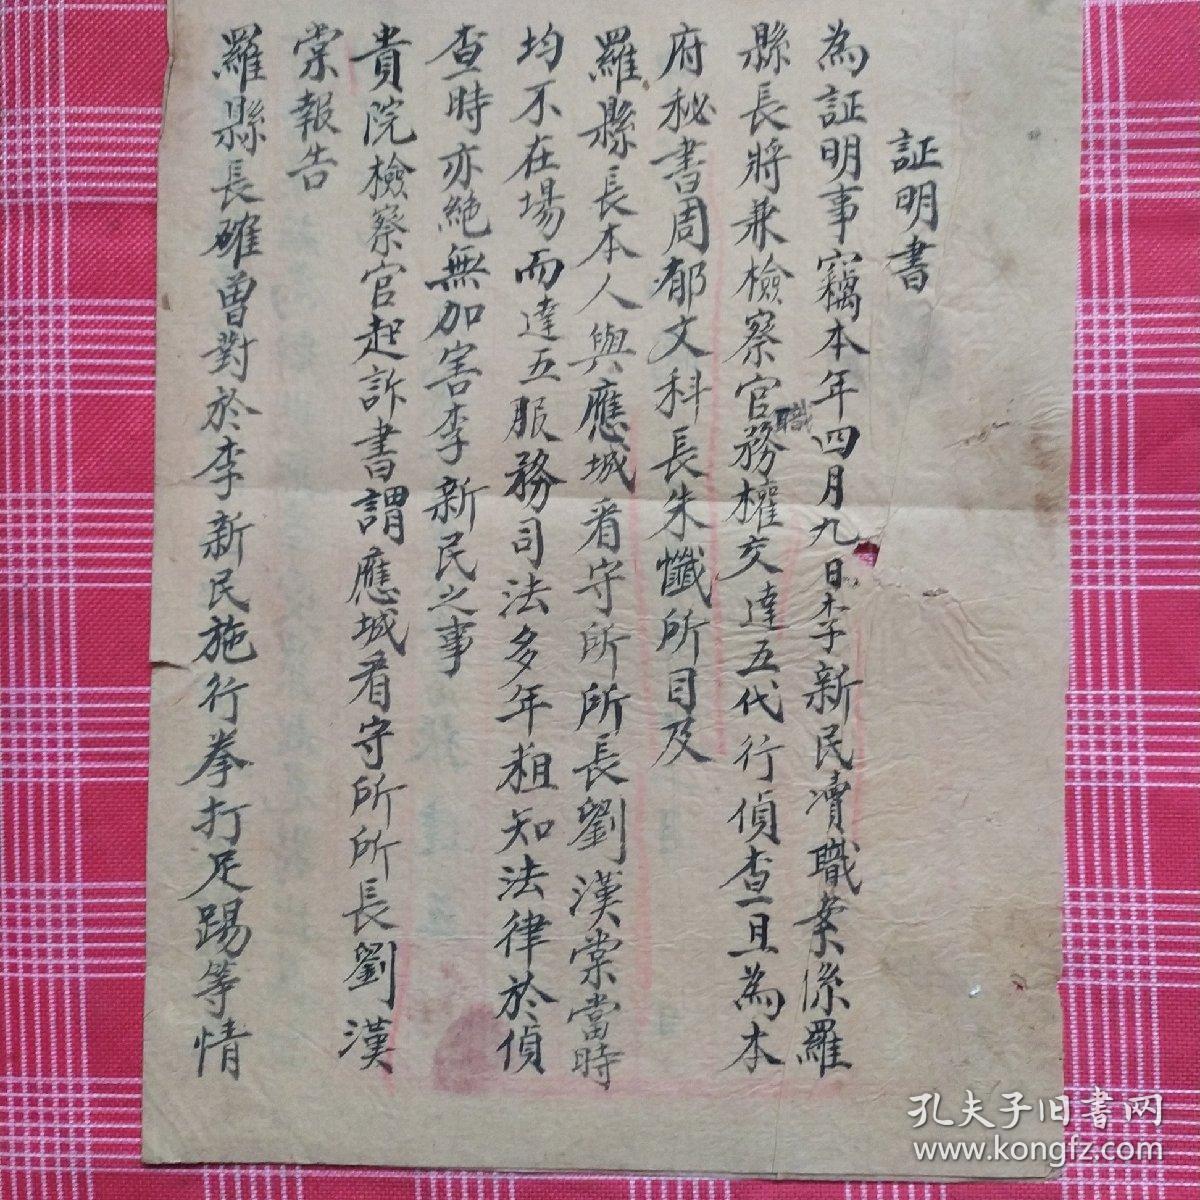 証明書
為証明事竊本年四月九日李新民瀆職案係羅
縣長將兼檢察官職務權交達五代行偵查且為本
府秘書周郁文科長朱懺所目及
羅縣長本人與應城看守所所長劉漢棠當時
均不在場而達五服務司法多年粗知法律於偵
查時亦絕無加害李新民之事
貴院檢察官起訴書謂應城看守所所長劉漢
棠報告
羅縣長確曾對於李新民施行拳打足踢等情
孔夫子旧书网
www.kongfz.com